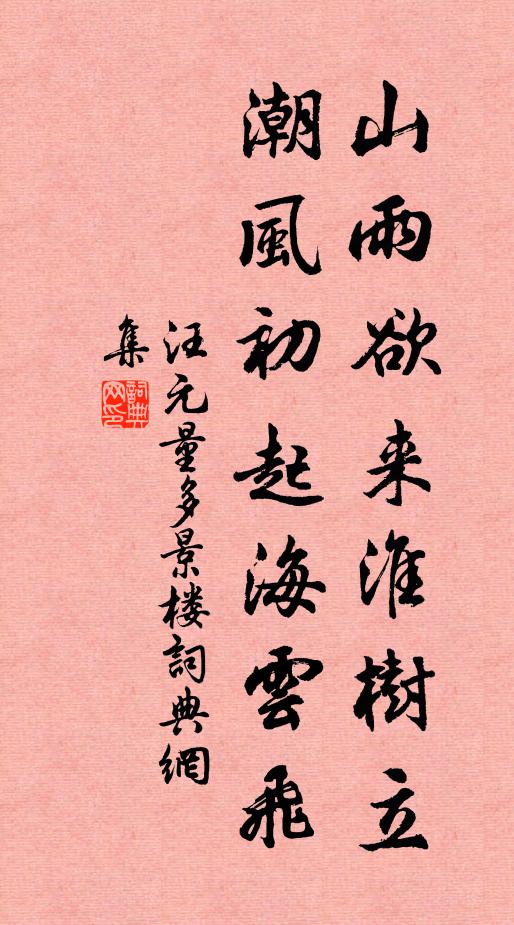 山雨欲来淮樹立
潮風初起海雲飛
汪元量多景楼詞典網
集
詞典网印